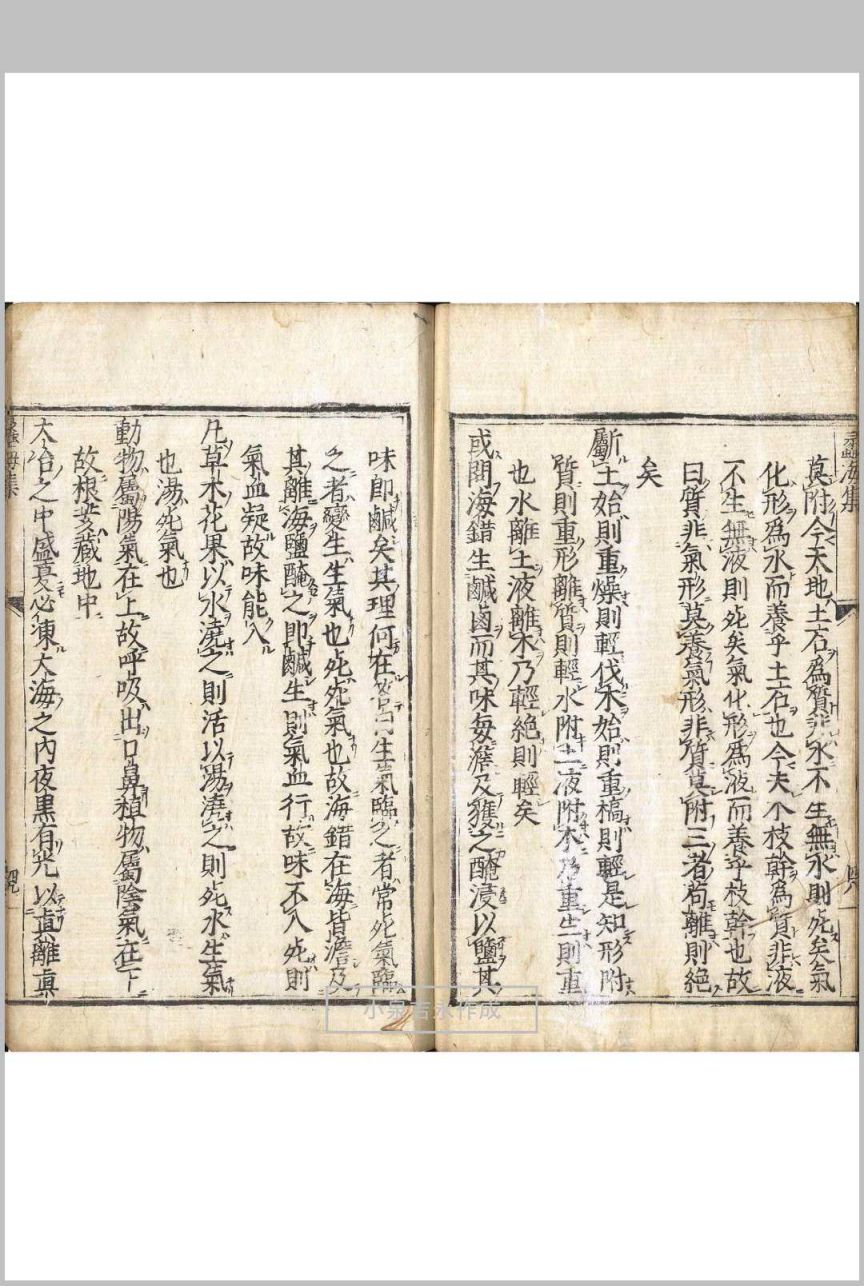 蠡海集
莫附今夫地土石爲質非水不生無水則死矣氣
化形爲水而養乎土石也今夫木枝幹爲質非液
不生無液則死矣氣化形爲液而養乎枝幹也故
曰質非氣形莫養氣形非質莫附三者苟離則絕
矣
斸土始則重燥則輕伐木始則重槁則輕是知形附
質則重形離質則輕水附土液附木乃重生則重
也水離土液離木乃輕絕則輕矣
或問海錯生鹹鹵而其味每澹及獲之醃浸以鹽其
味卽鹹矣其理何在答曰生氣臨之者常死氣臨
之者變生生氣也死死氣也故海錯在海皆澹及
其離海鹽醃之卽鹹生則氣血行故味不入死則
氣血凝故味能入
凡草木花果以水澆之則活以湯澆之則死水生氣
也湯死氣也
動物屬陽氣在上故呼吸出口鼻植物屬陰氣在下
故根荄藏地中
太冶之中盛夏必凍大海之內夜黑有光以眞離眞
蠡海集
小泉吉永作成